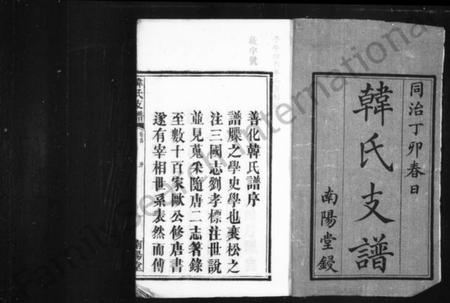 同治丁卯春日
韓氏支譜
南陽堂鋟
善化韓氏譜序
譜牒之學史學也裴松之
注三國志劉孝標注世說
並見蒐采隨唐二志著錄
至數十百家歐公修唐書
遂有宰相世系表然而傳
韓氏支譜
南陽堂
FamilySearch International